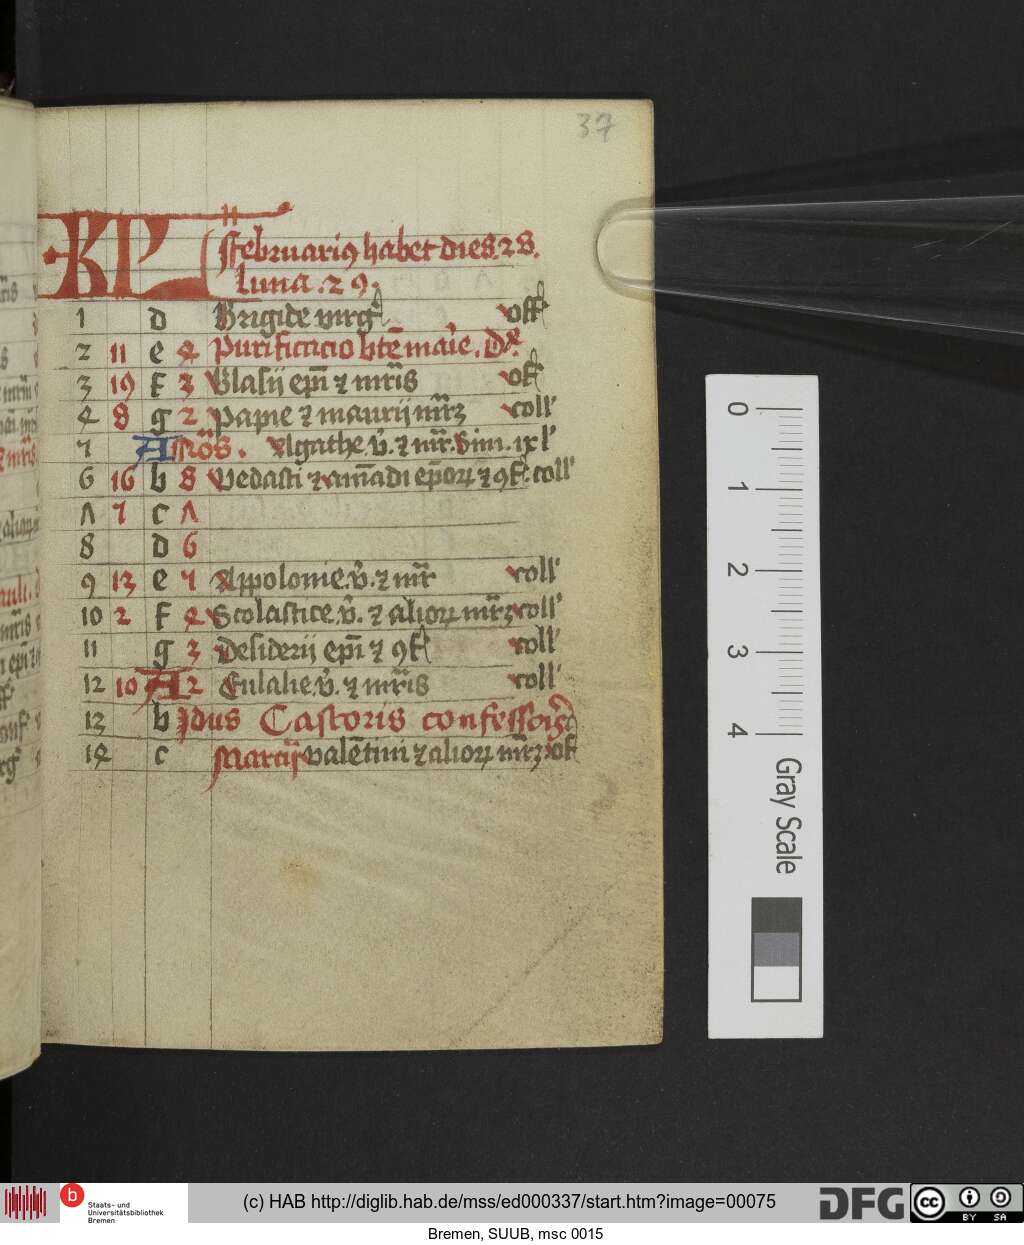 37
KL
Februariꝯ habet dies. 28.
Luna. 29.
1 d Brigide virgͥ off
2 11 e 4 Purificacio bte marie. D
3 19 f 3 Blasij epi ⁊ mris off
4 8 g 2 Papie ⁊ maurij mr coll'
5 A Nōs. Agathe v̄. ⁊ mr. Sim. ix l'
6 16 b 8 Vedasti ⁊ amādi epōꝝ ⁊ ꝯf. coll'
7 5 c 7
8 d 6
9 13 e 5 Appolonie v̄. ⁊ mr coll'
10 2 f 4 Scolastice v̄. ⁊ alioꝝ mr coll'
11 g 3 Desiderij epi ⁊ ꝯf coll'
12 10 A 2 Eulalie v̄. ⁊ mris coll'
13 b Jdus Castoris confessoris
14 c Marcij Valētini ⁊ alioꝝ mr off
0
1
2
3
4
Gray Scale
b Staats- und
Universitätsbibliothek
Bremen
(c) HAB http://diglib.hab.de/mss/ed000337/start.htm?image=00075
DFG
cc BY SA
Bremen, SUUB, msc 0015